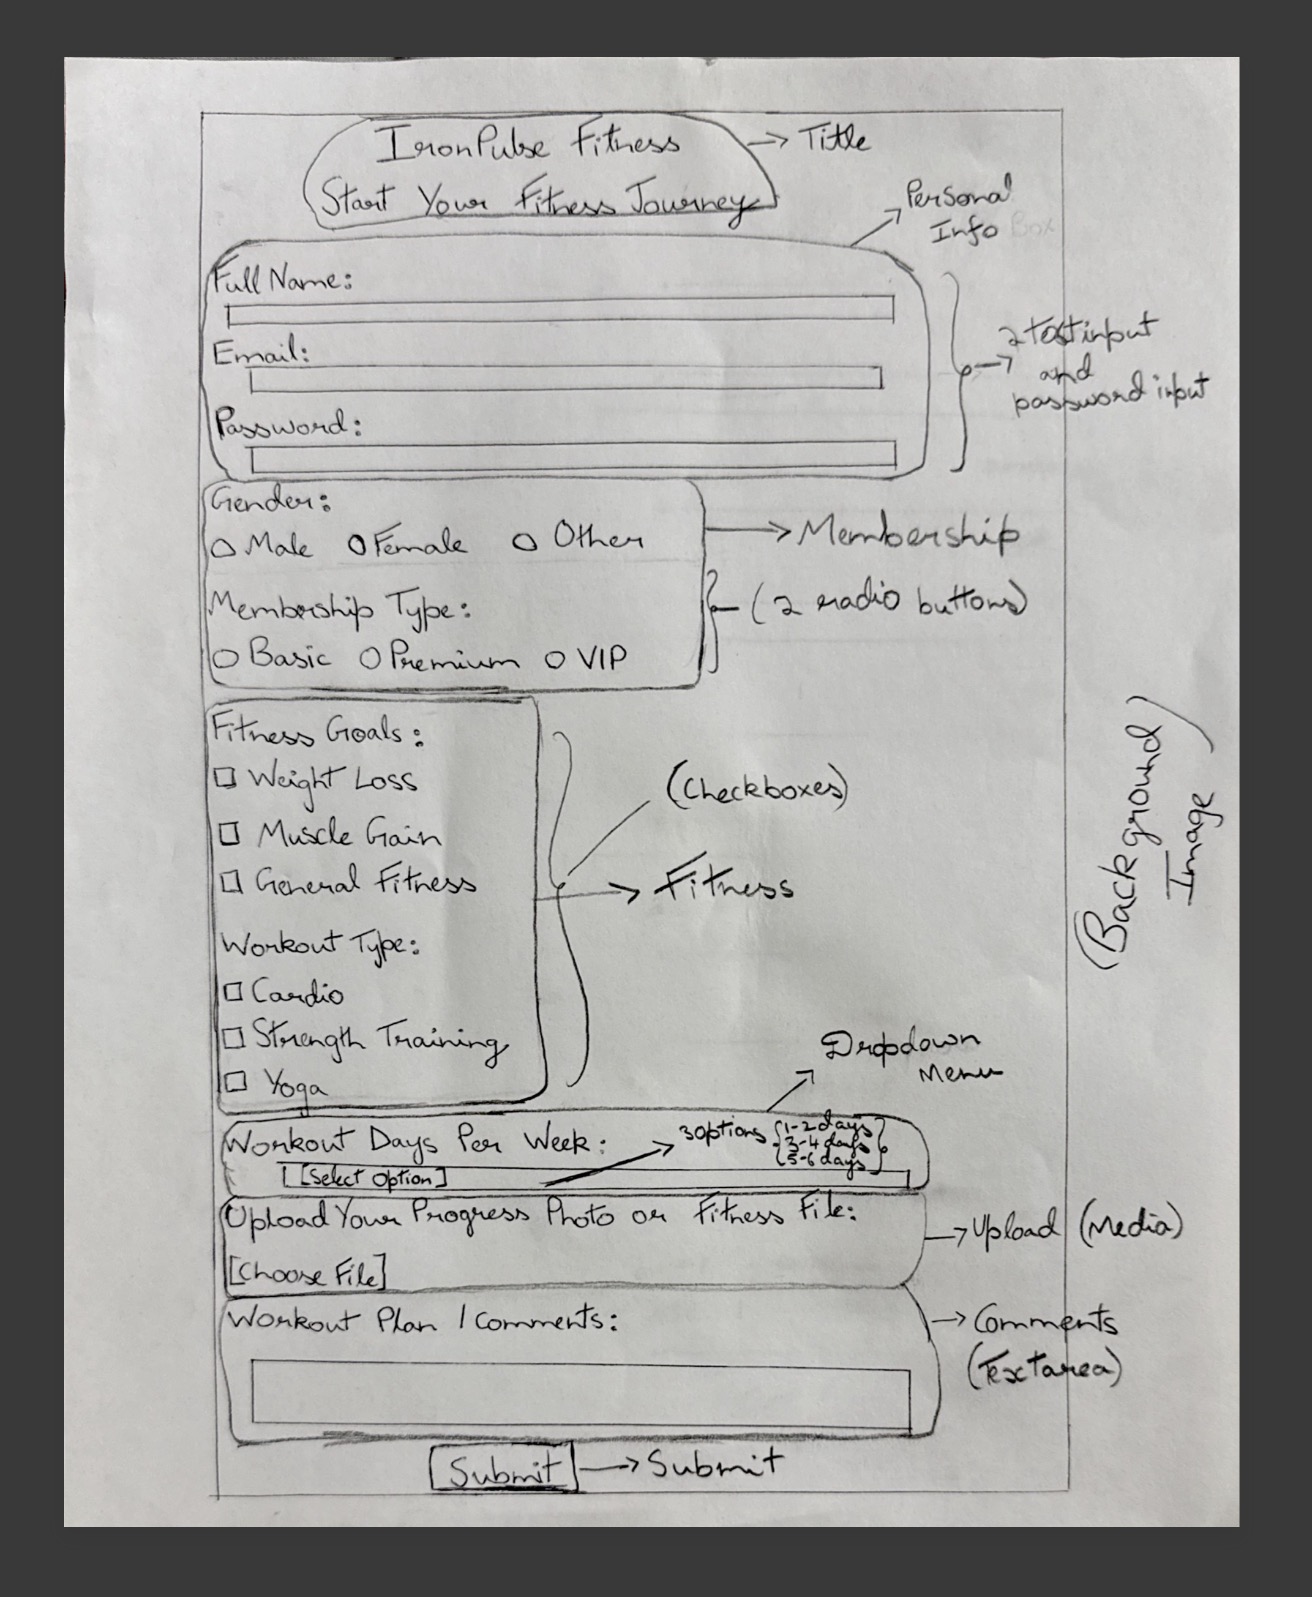 IronPulse Fitness → Title
Start Your Fitness Journey
Personal
Info Box
Full Name:
2 text input
and
password input
Email:
Password:
Gender:
○ Male ○ Female ○ Other
→ Membership
Membership Type:
(2 radio buttons)
○ Basic ○ Premium ○ VIP
Fitness Goals:
□ Weight Loss
(Checkboxes)
□ Muscle Gain
□ General Fitness
→ Fitness
Workout Type:
□ Cardio
□ Strength Training
□ Yoga
(Background
Image)
Dropdown
Menu
Workout Days Per Week:
3 options {1-2 days
3-4 days
5-6 days}
[Select Option]
Upload Your Progress Photo or Fitness File:
→ Upload (Media)
[Choose File]
Workout Plan / Comments:
→ Comments
(Textarea)
Submit → Submit